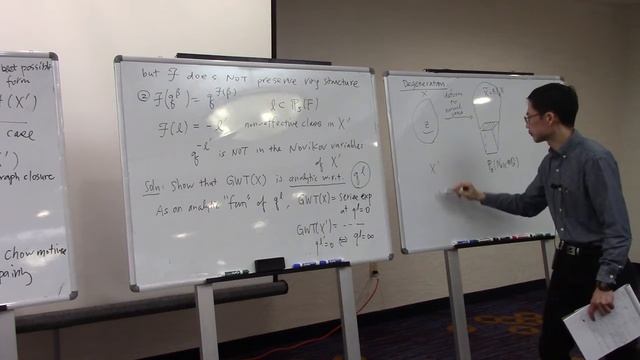 best possible
form
F(X')
case
graph closure
chow motive
pairing
but F does NOT preserve ring structure
② F(q^β) = q^F(β) l ∈ P_S(F)
F(l) = -l' noneffective class in X'
q^-l' is NOT in the Novikov variables
of X'
Soln: Show that GWT(X) is analytic w.r.t. q^l
As an analytic "fun" of q^l, GWT(X) = series exp
at q^l=0
GWT(X') = -- —
q^l'=0 ⇔ q^l=∞
Degeneration
X
deform
to
normal
cone
Z
X'